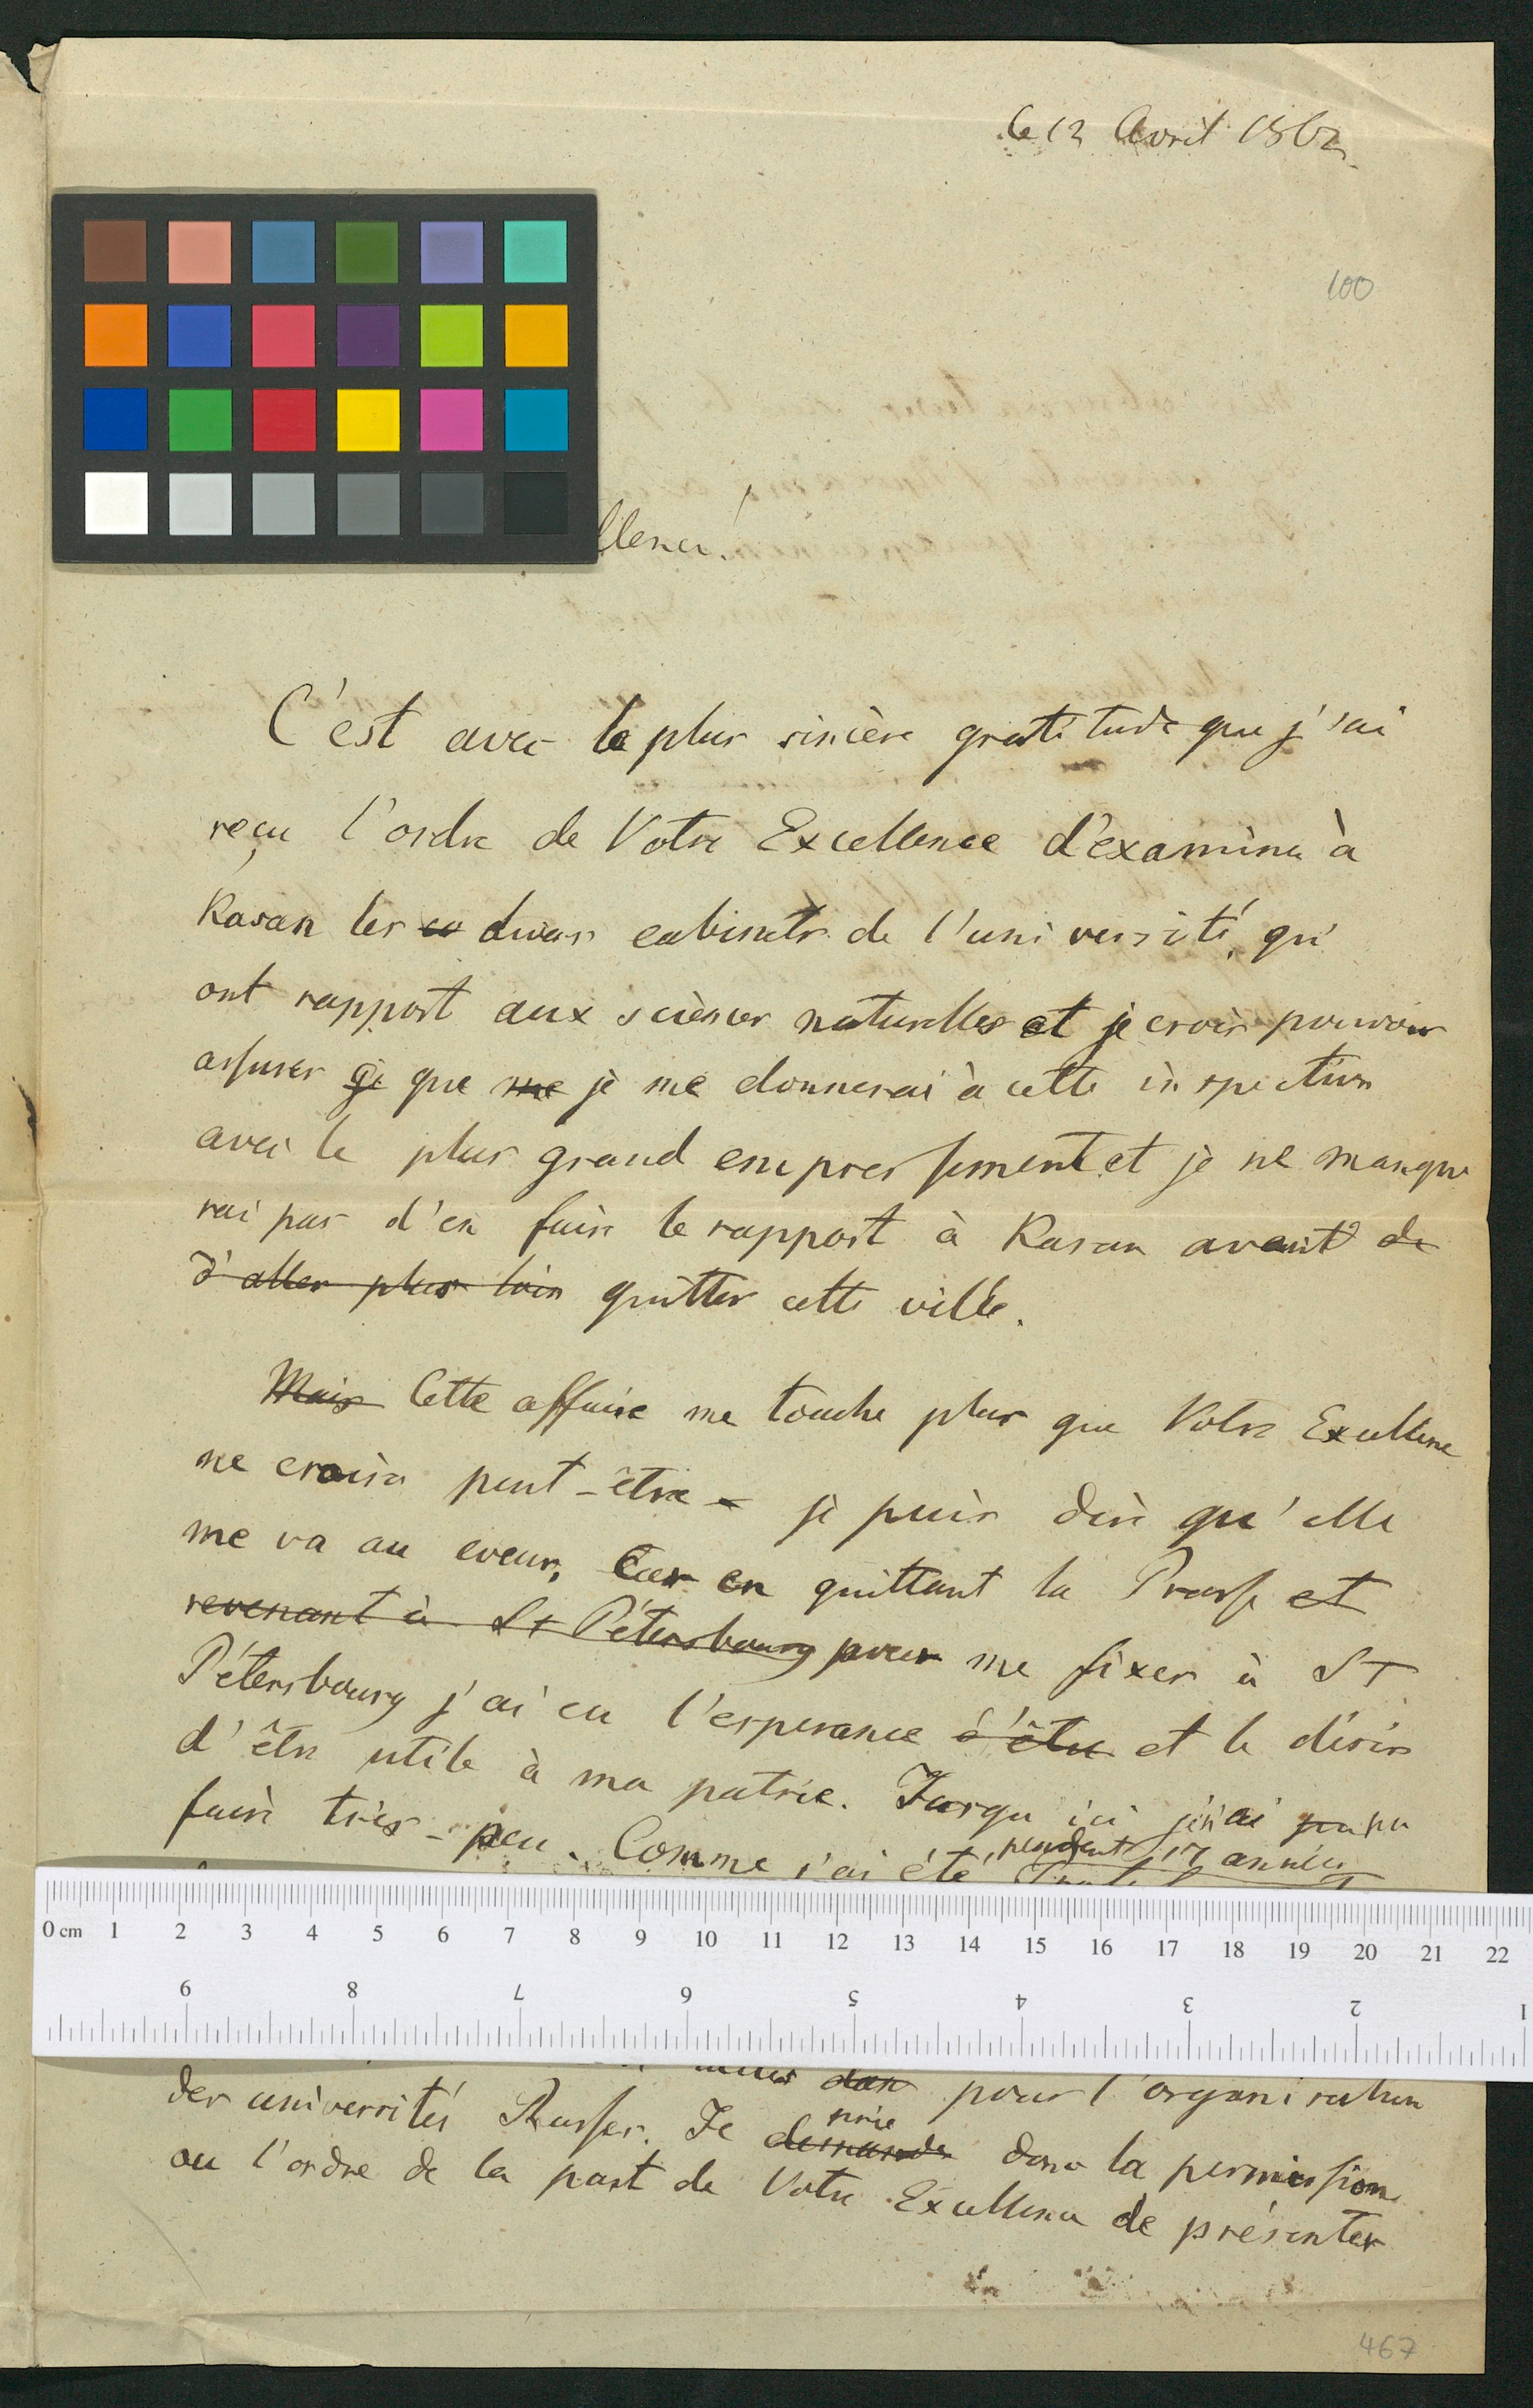 le 12 Avril 1862.
100
llence!
C'est avec la plus sincère gratitude que j'ai
reçu l'ordre de Votre Excellence d'examiner à
Kasan les ca divers cabinets de l'université, qui
ont rapport aux sciences naturelles et je crois pouvoir
assurer que me je me donnerai à cette inspection
avec le plus grand empressement et je ne manque
rai pas d'en faire le rapport à Kasan avant de
d'aller plus loin quitter cette ville.
Mais Cette affaire me touche plus que Votre Excellence
ne croira peut-être - je puis dire qu'elle
me va au coeur, Car en quittant la Prusse et
revenant à St Pétersbourg pour me fixer à St
Pétersbourg j'ai eu l'esperance d'être et le désir
d'être utile à ma patrie. Jusqu'ici j'ai pu
faire très-peu. Comme j'ai été pendant 17 années
0 cm 1 2 3 4 5 6 7 8 9 10 11 12 13 14 15 16 17 18 19 20 21 22
9 8 7 6 5 4 3 2 1
pour l'organisation
des universités Russes. Je demande prie donc la permission
ou l'ordre de la part de Votre Excellence de présenter
467